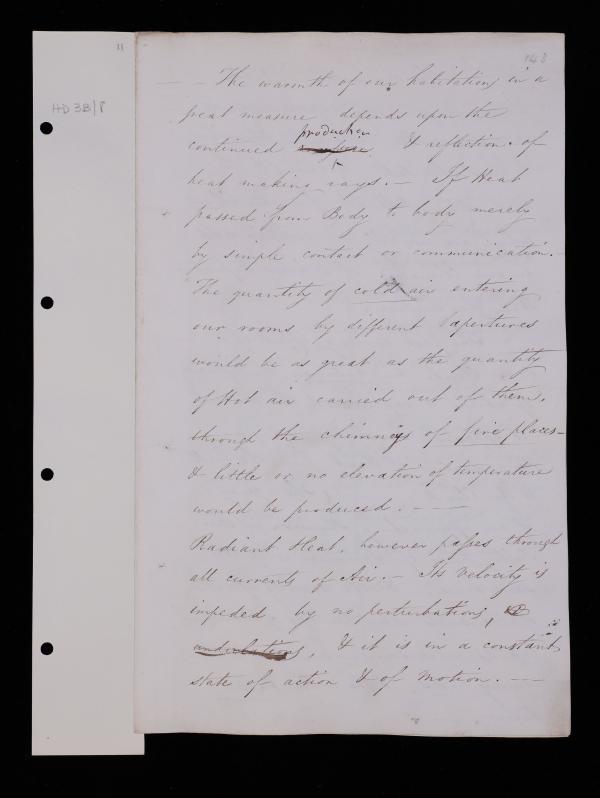 11
148
HD 3B/8
— – The warmth of our habitations in a
great measure depends upon the
production
continued & reflection of
heat making rays. — If Heat
passed from Body to body merely
by simple contact or communication. –
The quantity of cold air entering
our rooms by different apertures
would be as great as the quantity
of Hot air carried out of them.
through the chimneys of fire places –
& little or no elevation of temperature
would be produced. – — —
Radiant Heat, however passes through
all currents of Air. – Its velocity is
impeded by no perturbations, or
undulations, & it is in a constant
state of action & of motion. — —